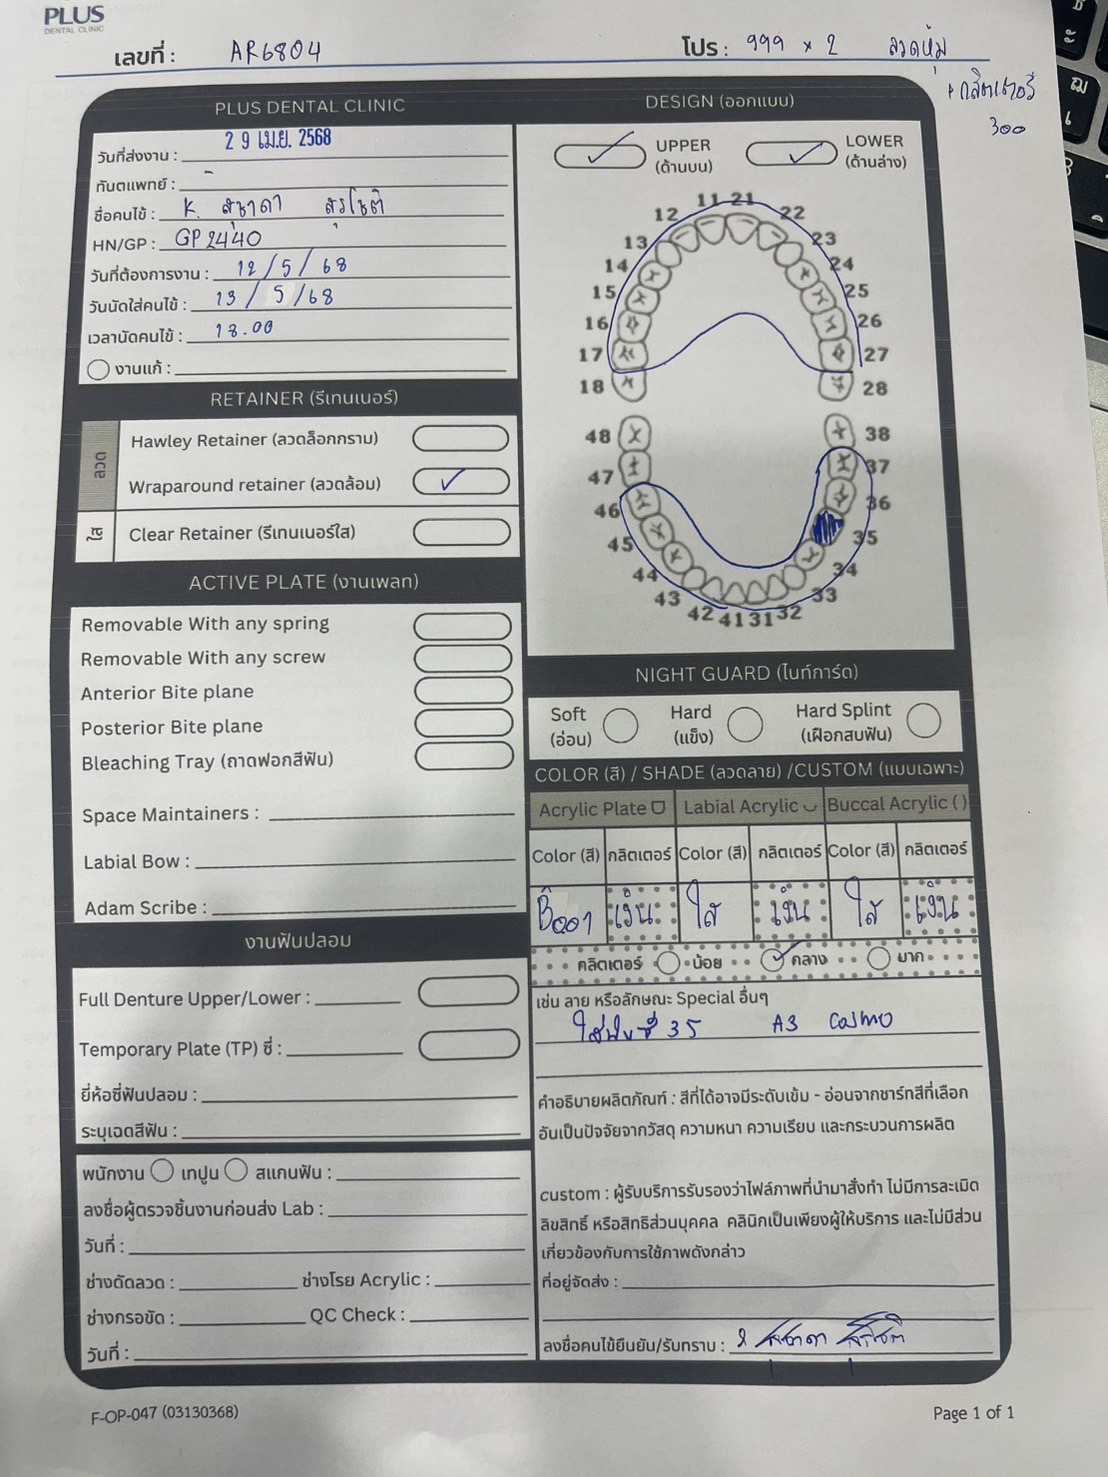 PLUS
DENTAL CLINIC
เลขที่ : AR6804
โปร : 999 x 2 ลวดหุ้ม
+ กลิตเตอร์
300
PLUS DENTAL CLINIC
วันที่ส่งงาน : 29 เม.ย. 2568
ทันตแพทย์ : -
ชื่อคนไข้ : K. สุชาดา
HN/GP : GP2440
วันที่ต้องการงาน : 12/5/68
วันนัดใส่คนไข้ : 13/5/68
เวลานัดคนไข้ : 18.00
งานแก้ :
RETAINER (รีเทนเนอร์)
ลวด
Hawley Retainer (ลวดล็อกกราม)
Wraparound retainer (ลวดล้อม)
ใส
Clear Retainer (รีเทนเนอร์ใส)
ACTIVE PLATE (งานเพลท)
Removable With any spring
Removable With any screw
Anterior Bite plane
Posterior Bite plane
Bleaching Tray (ถาดฟอกสีฟัน)
Space Maintainers :
Labial Bow :
Adam Scribe :
งานฟันปลอม
Full Denture Upper/Lower :
Temporary Plate (TP) ซี่ :
ยี่ห้อซี่ฟันปลอม :
ระบุเฉดสีฟัน :
พนักงาน เทปูน สแกนฟัน :
ลงชื่อผู้ตรวจชิ้นงานก่อนส่ง Lab :
วันที่ :
ช่างดัดลวด : ช่างโรย Acrylic :
ช่างกรอขัด : QC Check :
วันที่ :
DESIGN (ออกแบบ)
UPPER
(ด้านบน)
LOWER
(ด้านล่าง)
11 21
12 22
13 23
14 24
15 25
16 26
17 27
18 28
48 38
47 37
46 36
45 35
44 34
43 33
42 41 31 32
NIGHT GUARD (ไนท์การ์ด)
Soft
(อ่อน)
Hard
(แข็ง)
Hard Splint
(เฝือกสบฟัน)
COLOR (สี) / SHADE (ลวดลาย) /CUSTOM (แบบเฉพาะ)
Acrylic Plate Labial Acrylic Buccal Acrylic ( )
Color (สี) กลิตเตอร์ Color (สี) กลิตเตอร์ Color (สี) กลิตเตอร์
B001 เงิน ใส เงิน ใส เงิน
กลิตเตอร์ น้อย กลาง มาก
เช่น ลาย หรือลักษณะ Special อื่นๆ
ใส่ฟันซี่ 35 A3 cosmo
คำอธิบายผลิตภัณฑ์ : สีที่ได้อาจมีระดับเข้ม - อ่อนจากชาร์ทสีที่เลือก
อันเป็นปัจจัยจากวัสดุ ความหนา ความเรียบ และกระบวนการผลิต
custom : ผู้รับบริการรับรองว่าไฟล์ภาพที่นำมาสั่งทำ ไม่มีการละเมิด
ลิขสิทธิ์ หรือสิทธิส่วนบุคคล คลินิกเป็นเพียงผู้ให้บริการ และไม่มีส่วน
เกี่ยวข้องกับการใช้ภาพดังกล่าว
ที่อยู่จัดส่ง :
ลงชื่อคนไข้ยืนยัน/รับทราบ :
F-OP-047 (03130368)
Page 1 of 1